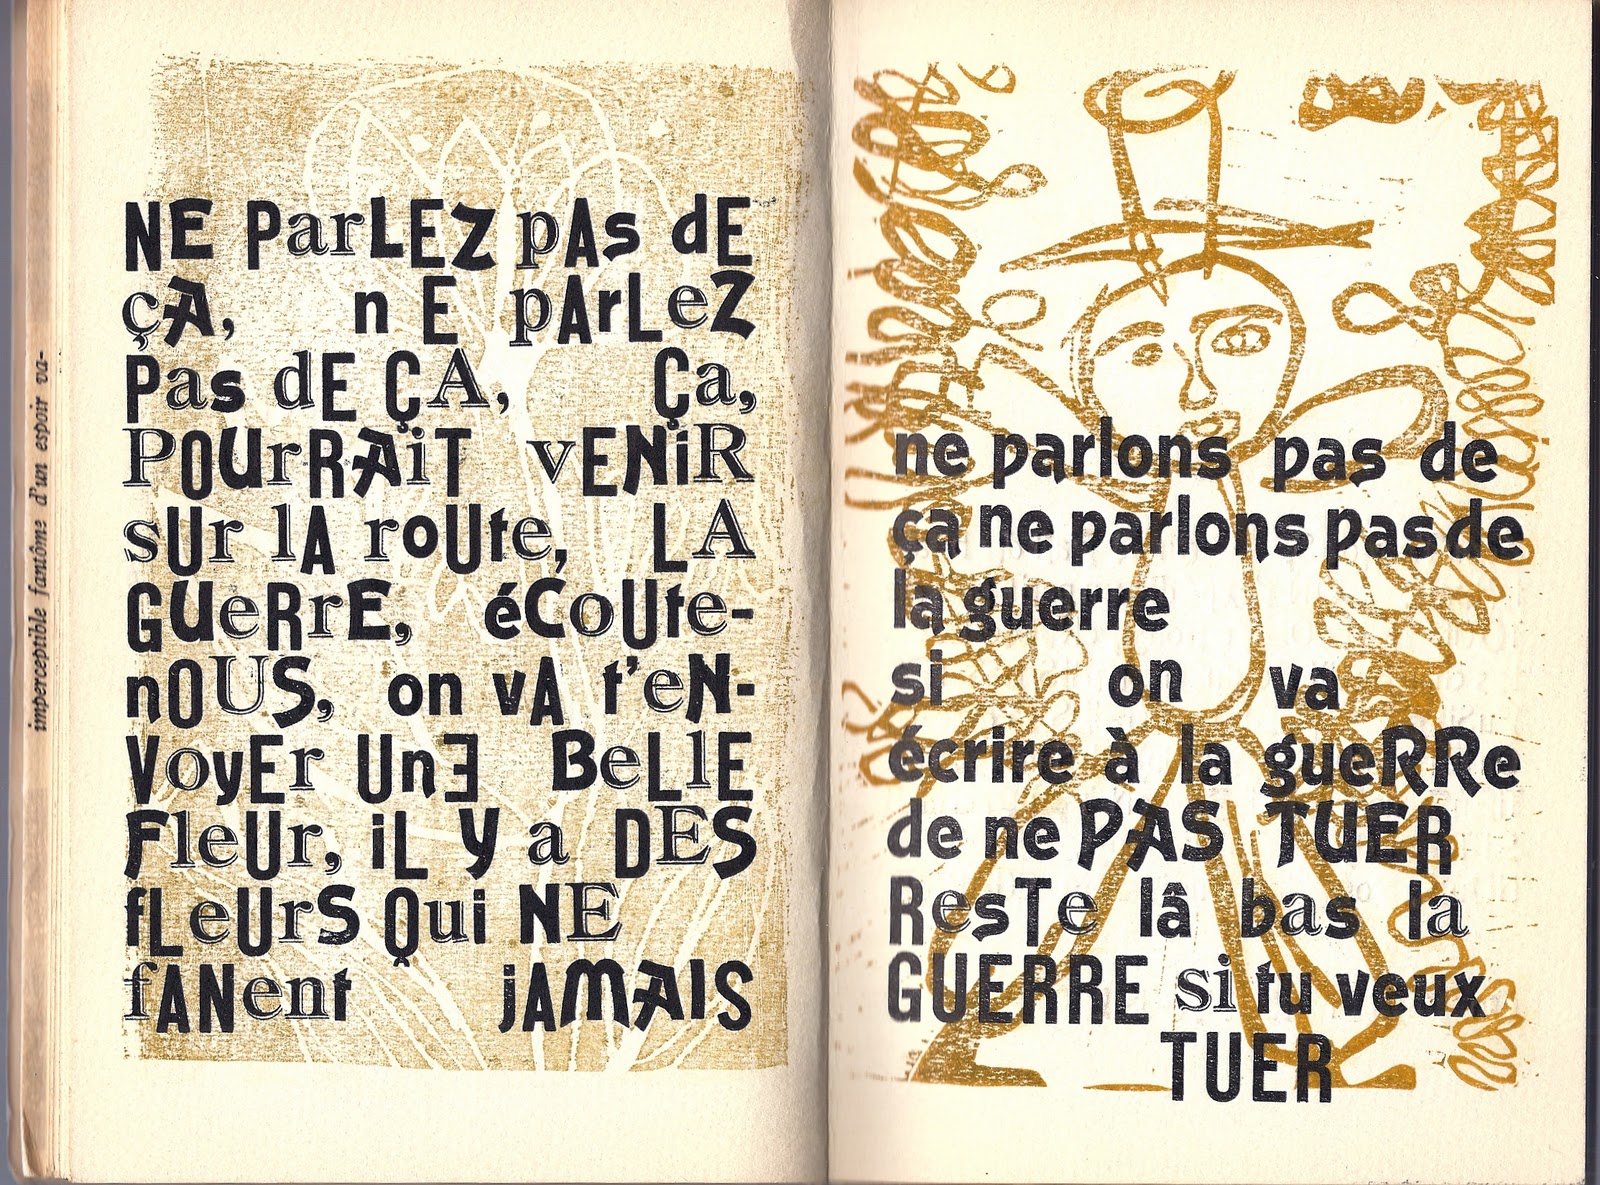 imperceptible fantôme d'un espoir va-
NE ParLEZ pAs dE
çA, nE pArLeZ
Pas dE ÇA, Ça,
POUrRAiT vENiR
sUr lA roUte, LA
GUeRrE, éCoUte-
nOUS, on vA t'eN-
VoyEr UnE BeLlE
FleUr, iL y a DES
fLeUrS Qui NE
fANent jAMAIS
ne parlons pas de
ça ne parlons pas de
la guerre
si on va
écrire à la gueRRe
de ne PAS TUER
ResTe lâ bas la
GUERRE si tu veux
TUER